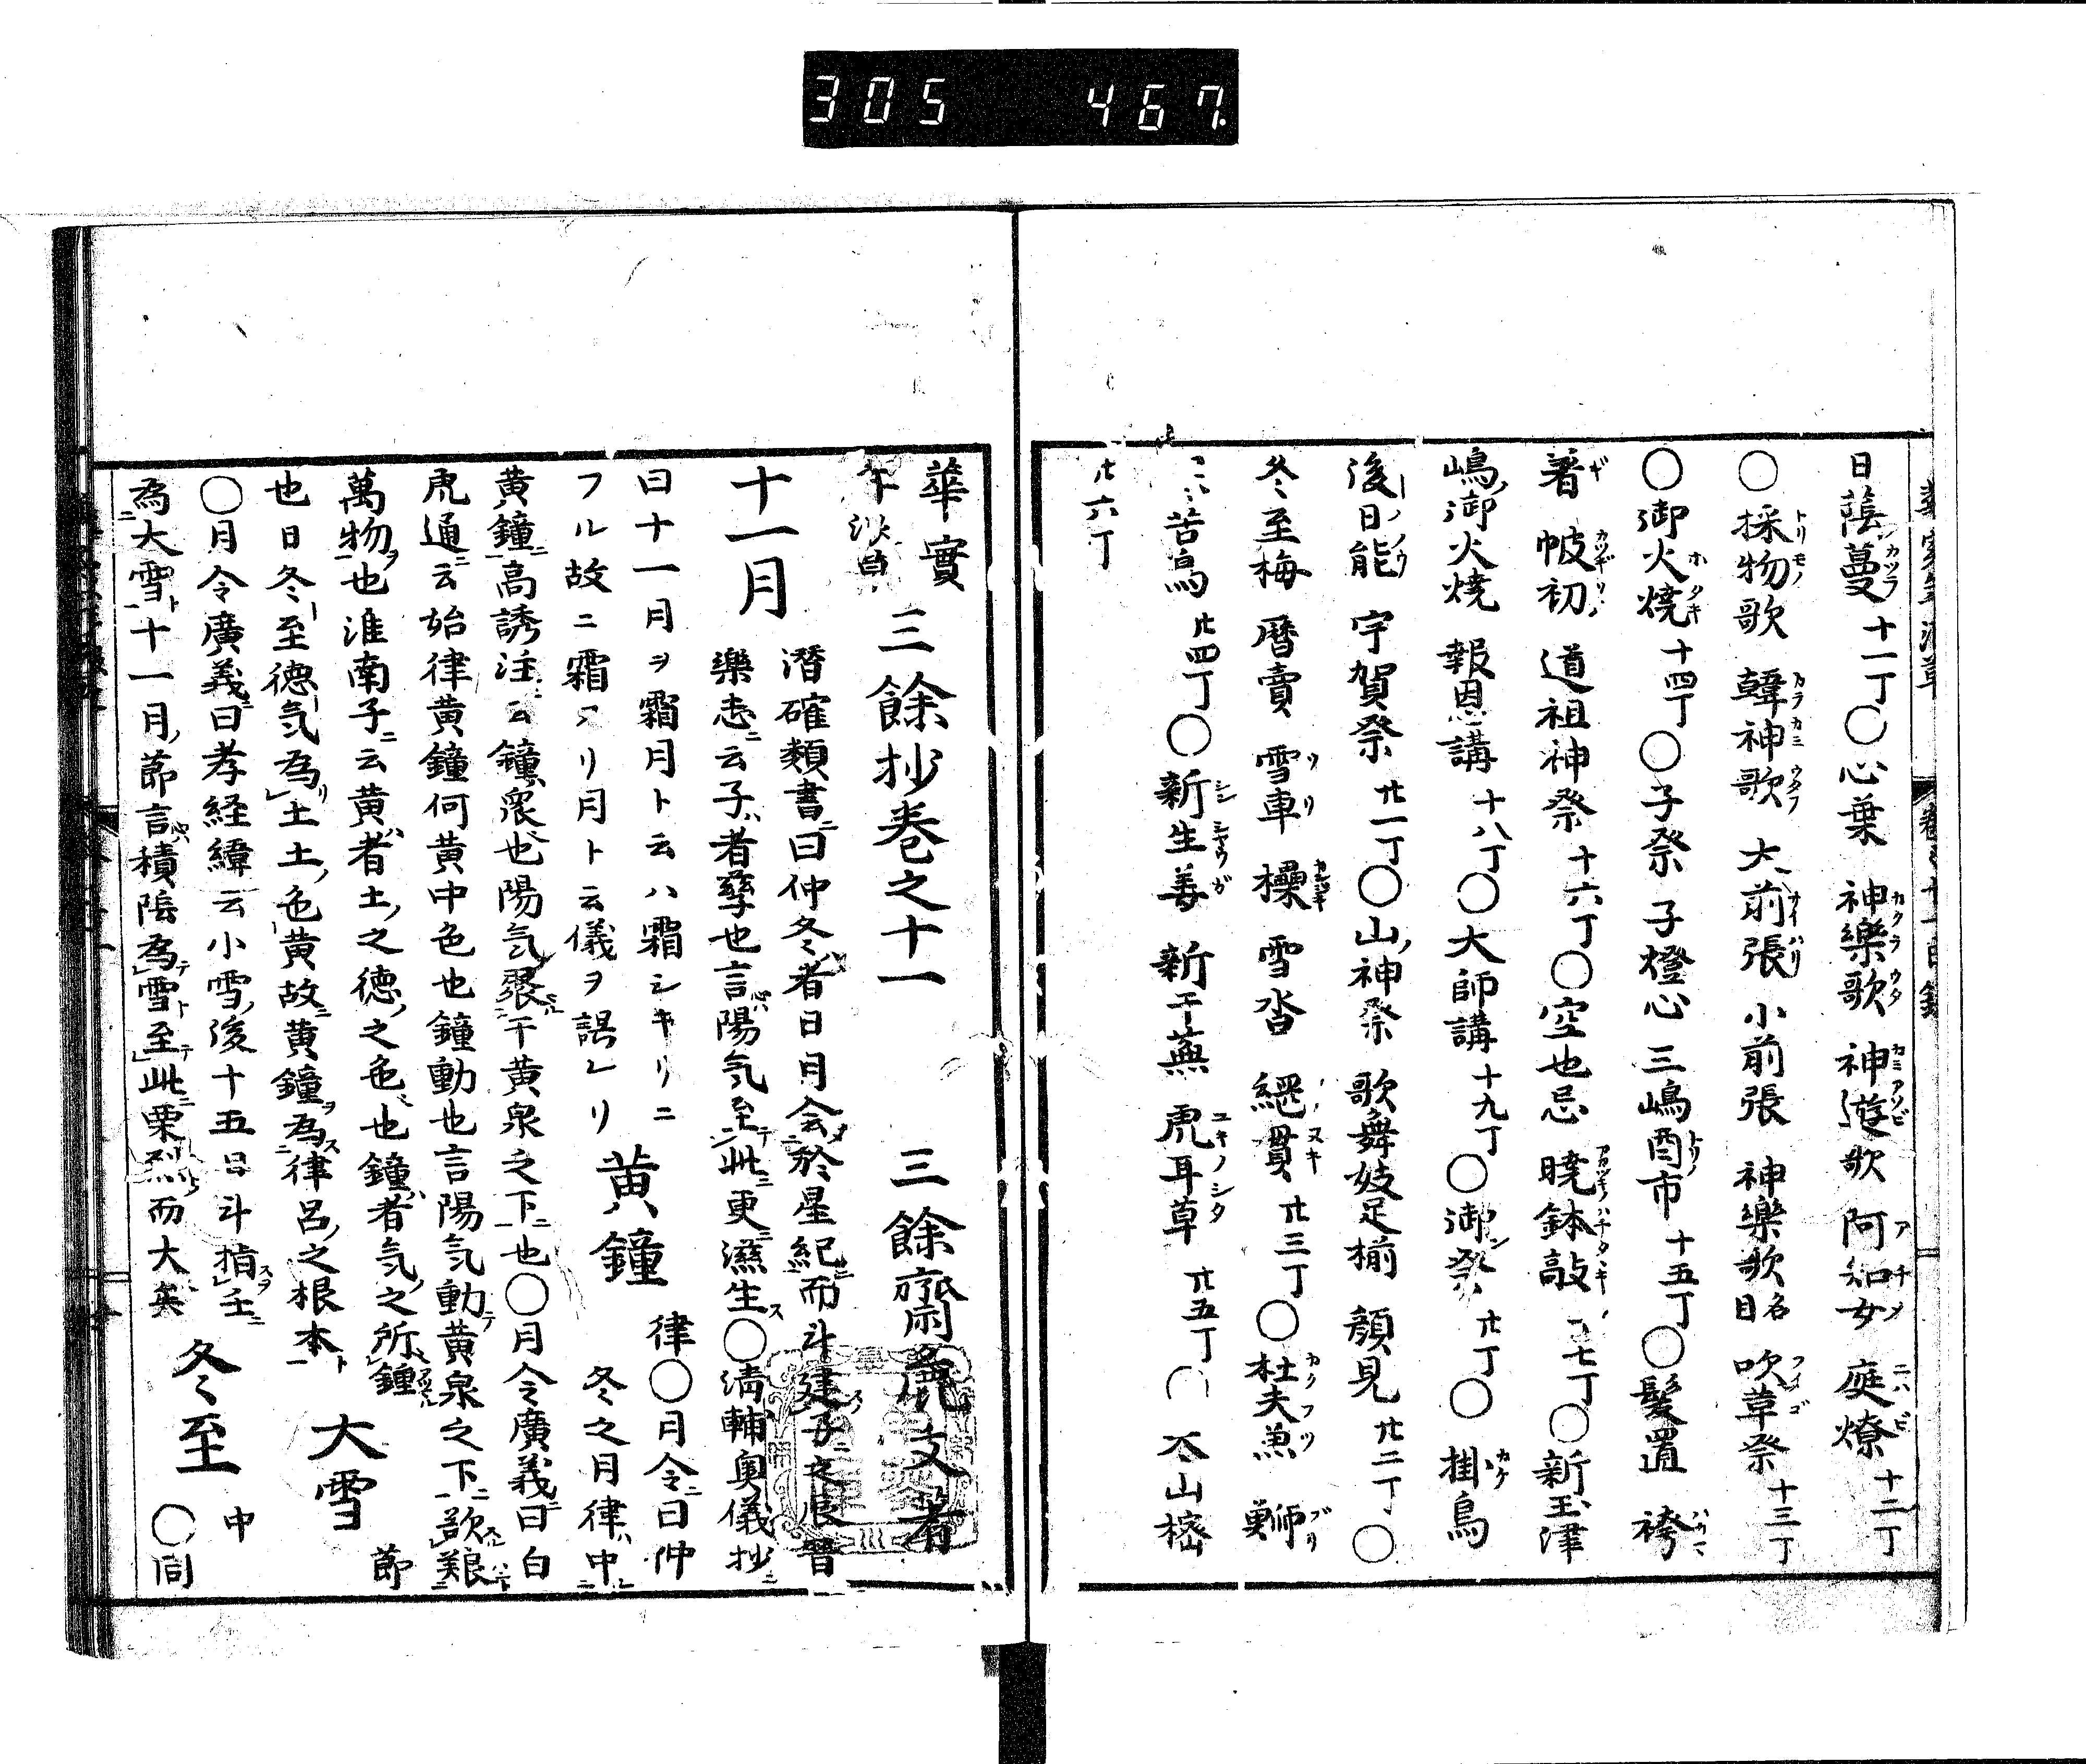 305 467.
日蔭蔓 十一丁〇心葉 神樂歌 神遊歌 阿知女 庭燎 十二丁
〇採物歌 韓神歌 大前張 小前張 神樂歌名目 吹草祭 十三丁
〇御火燒 十四丁〇子祭 子燈心 三嶋酉市 十五丁〇髮置 袴
著 帔初 道祖神祭 十六丁〇空也忌 曉鉢敲 十七丁〇新玉津
嶋御火燒 報恩講 十八丁〇大師講 十九丁〇御祭 廿丁〇掛鳥
後日能 宇賀祭 廿一丁〇山神祭 歌舞妓足揃 顏見 廿二丁〇
冬至梅 曆賣 雪車 橇 雪沓 緡貫 廿三丁〇杜夫魚 鰤
苦鳥 廿四丁〇新生姜 新干蕪 虎耳草 廿五丁〇 山樒
廿六丁
華實
年浪草 三餘抄卷之十一 三餘齋麁文著
十一月 潛確類書曰仲冬者日月会於星紀而斗建子之辰晉
樂志云子者孳也言陽気至此更滋生〇清輔奧儀抄
曰十一月ヲ霜月ト云ハ霜シキリニ
フル故ニ霜フリ月ト云儀ヲ誤レリ 黄鐘 律〇月令曰仲
冬之月律中
黄鐘高誘注云鐘衆也陽気聚于黄泉之下也〇月令廣義曰白
虎通云始律黄鐘何黄中色也鐘動也言陽気動黄泉之下欲養
萬物也淮南子云黄者土之德之色也鐘者気之所鐘
也日冬至德気為土土色黄故黄鐘為律呂之根本 大雪 節
〇月令廣義曰孝経緯云小雪後十五日斗指壬
為大雪十一月節言積陰為雪至此栗烈而大矣 冬至 中
〇同